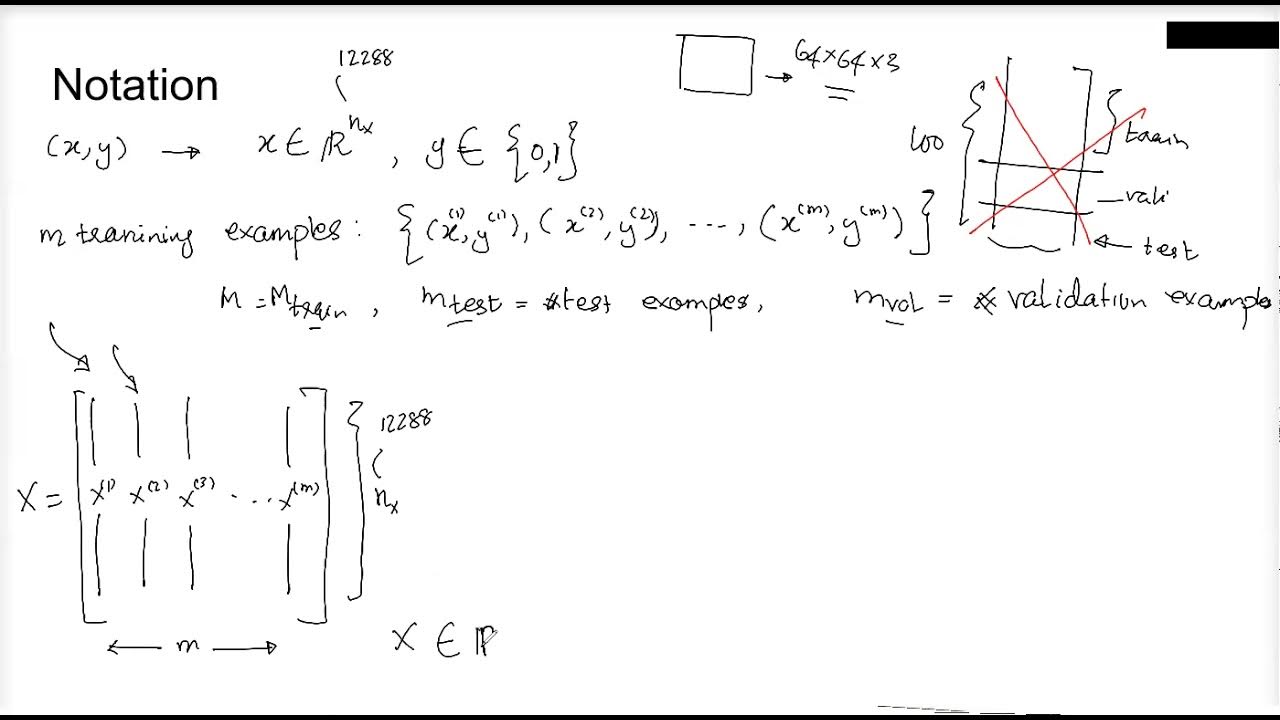 12288
Notation
64×64×3
(x,y) → x ∈ ℝ^nx , y ∈ {0,1}
100
train
vali
test
m tranining examples: {(x^(1), y^(1)), (x^(2), y^(2)), ..., (x^(m), y^(m))}
M = Mtrain , mtest = #test examples, mval = # validation examples
12288
X = [x^(1) x^(2) x^(3) ... x^(m)] nx
← m →
X ∈ ℝ